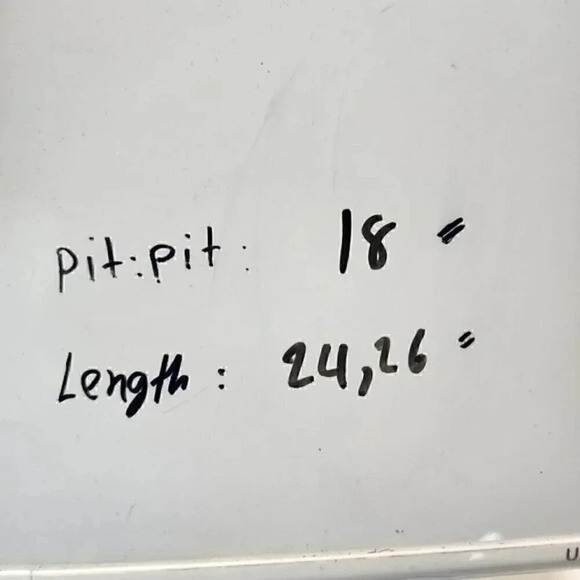 pit:pit: 18"
Length: 24,26"
U